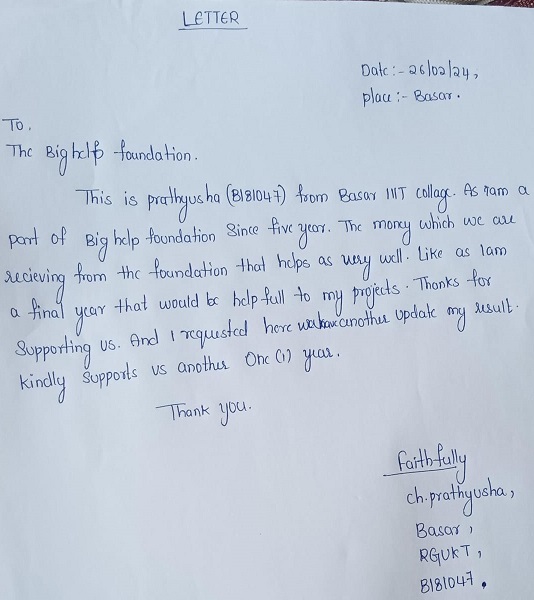 LETTER
Date:- 26/02/24,
place:- Basar.
To,
The Bighelp foundation.
This is prathyusha (B181047) from Basar IIIT collage. As Iam a
part of Big help foundation Since five year. The money which we are
recieving from the foundation that helps as very well. Like as Iam
a final year that would be help full to my projects. Thanks for
Supporting us. And I requested here another update my result.
kindly Supports us another One (1) year.
Thank you.
Faithfully
ch.prathyusha,
Basar,
RGUKT,
B181047.